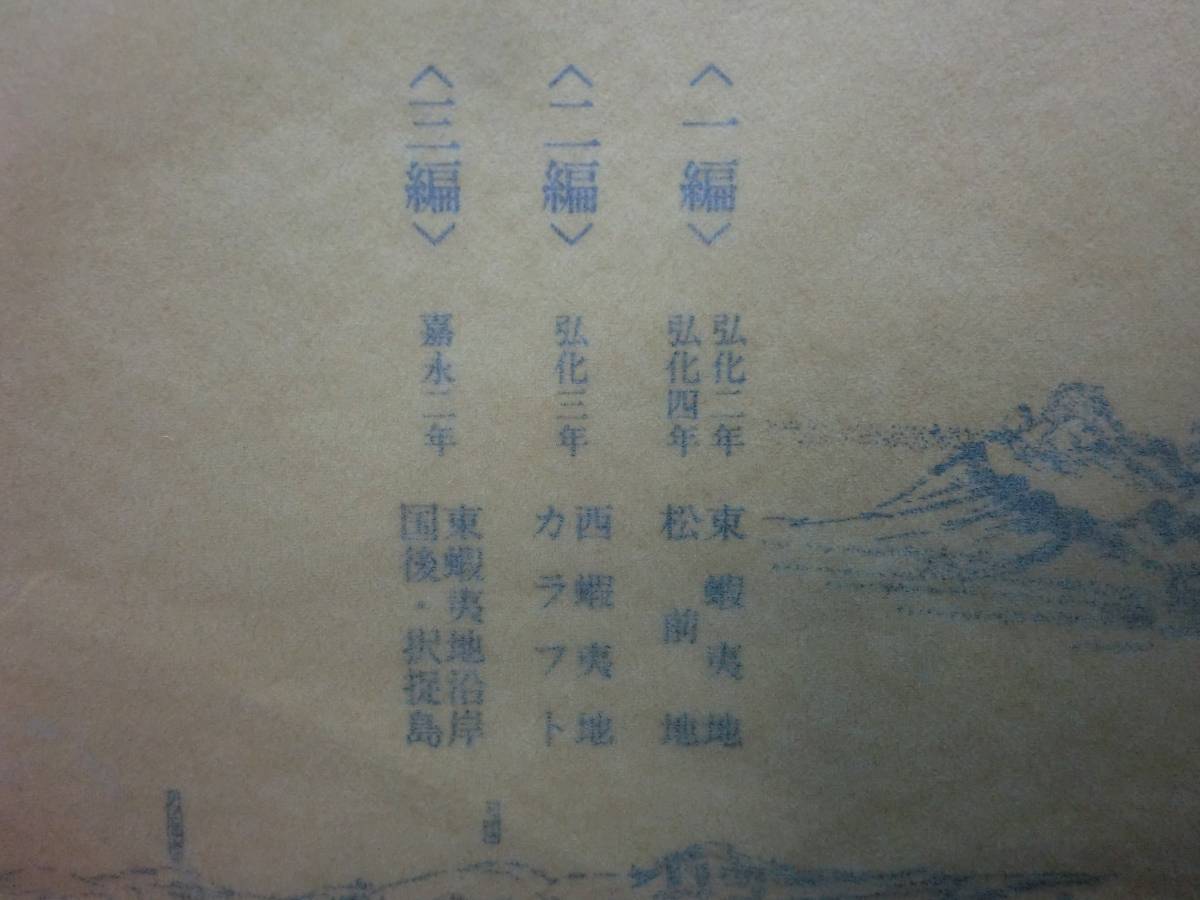 〈一編〉
弘化二年 東蝦夷地
弘化四年 松前地
〈二編〉
弘化三年 西蝦夷地
カラフト
〈三編〉
嘉永二年 東蝦夷地沿岸
国後・択捉島